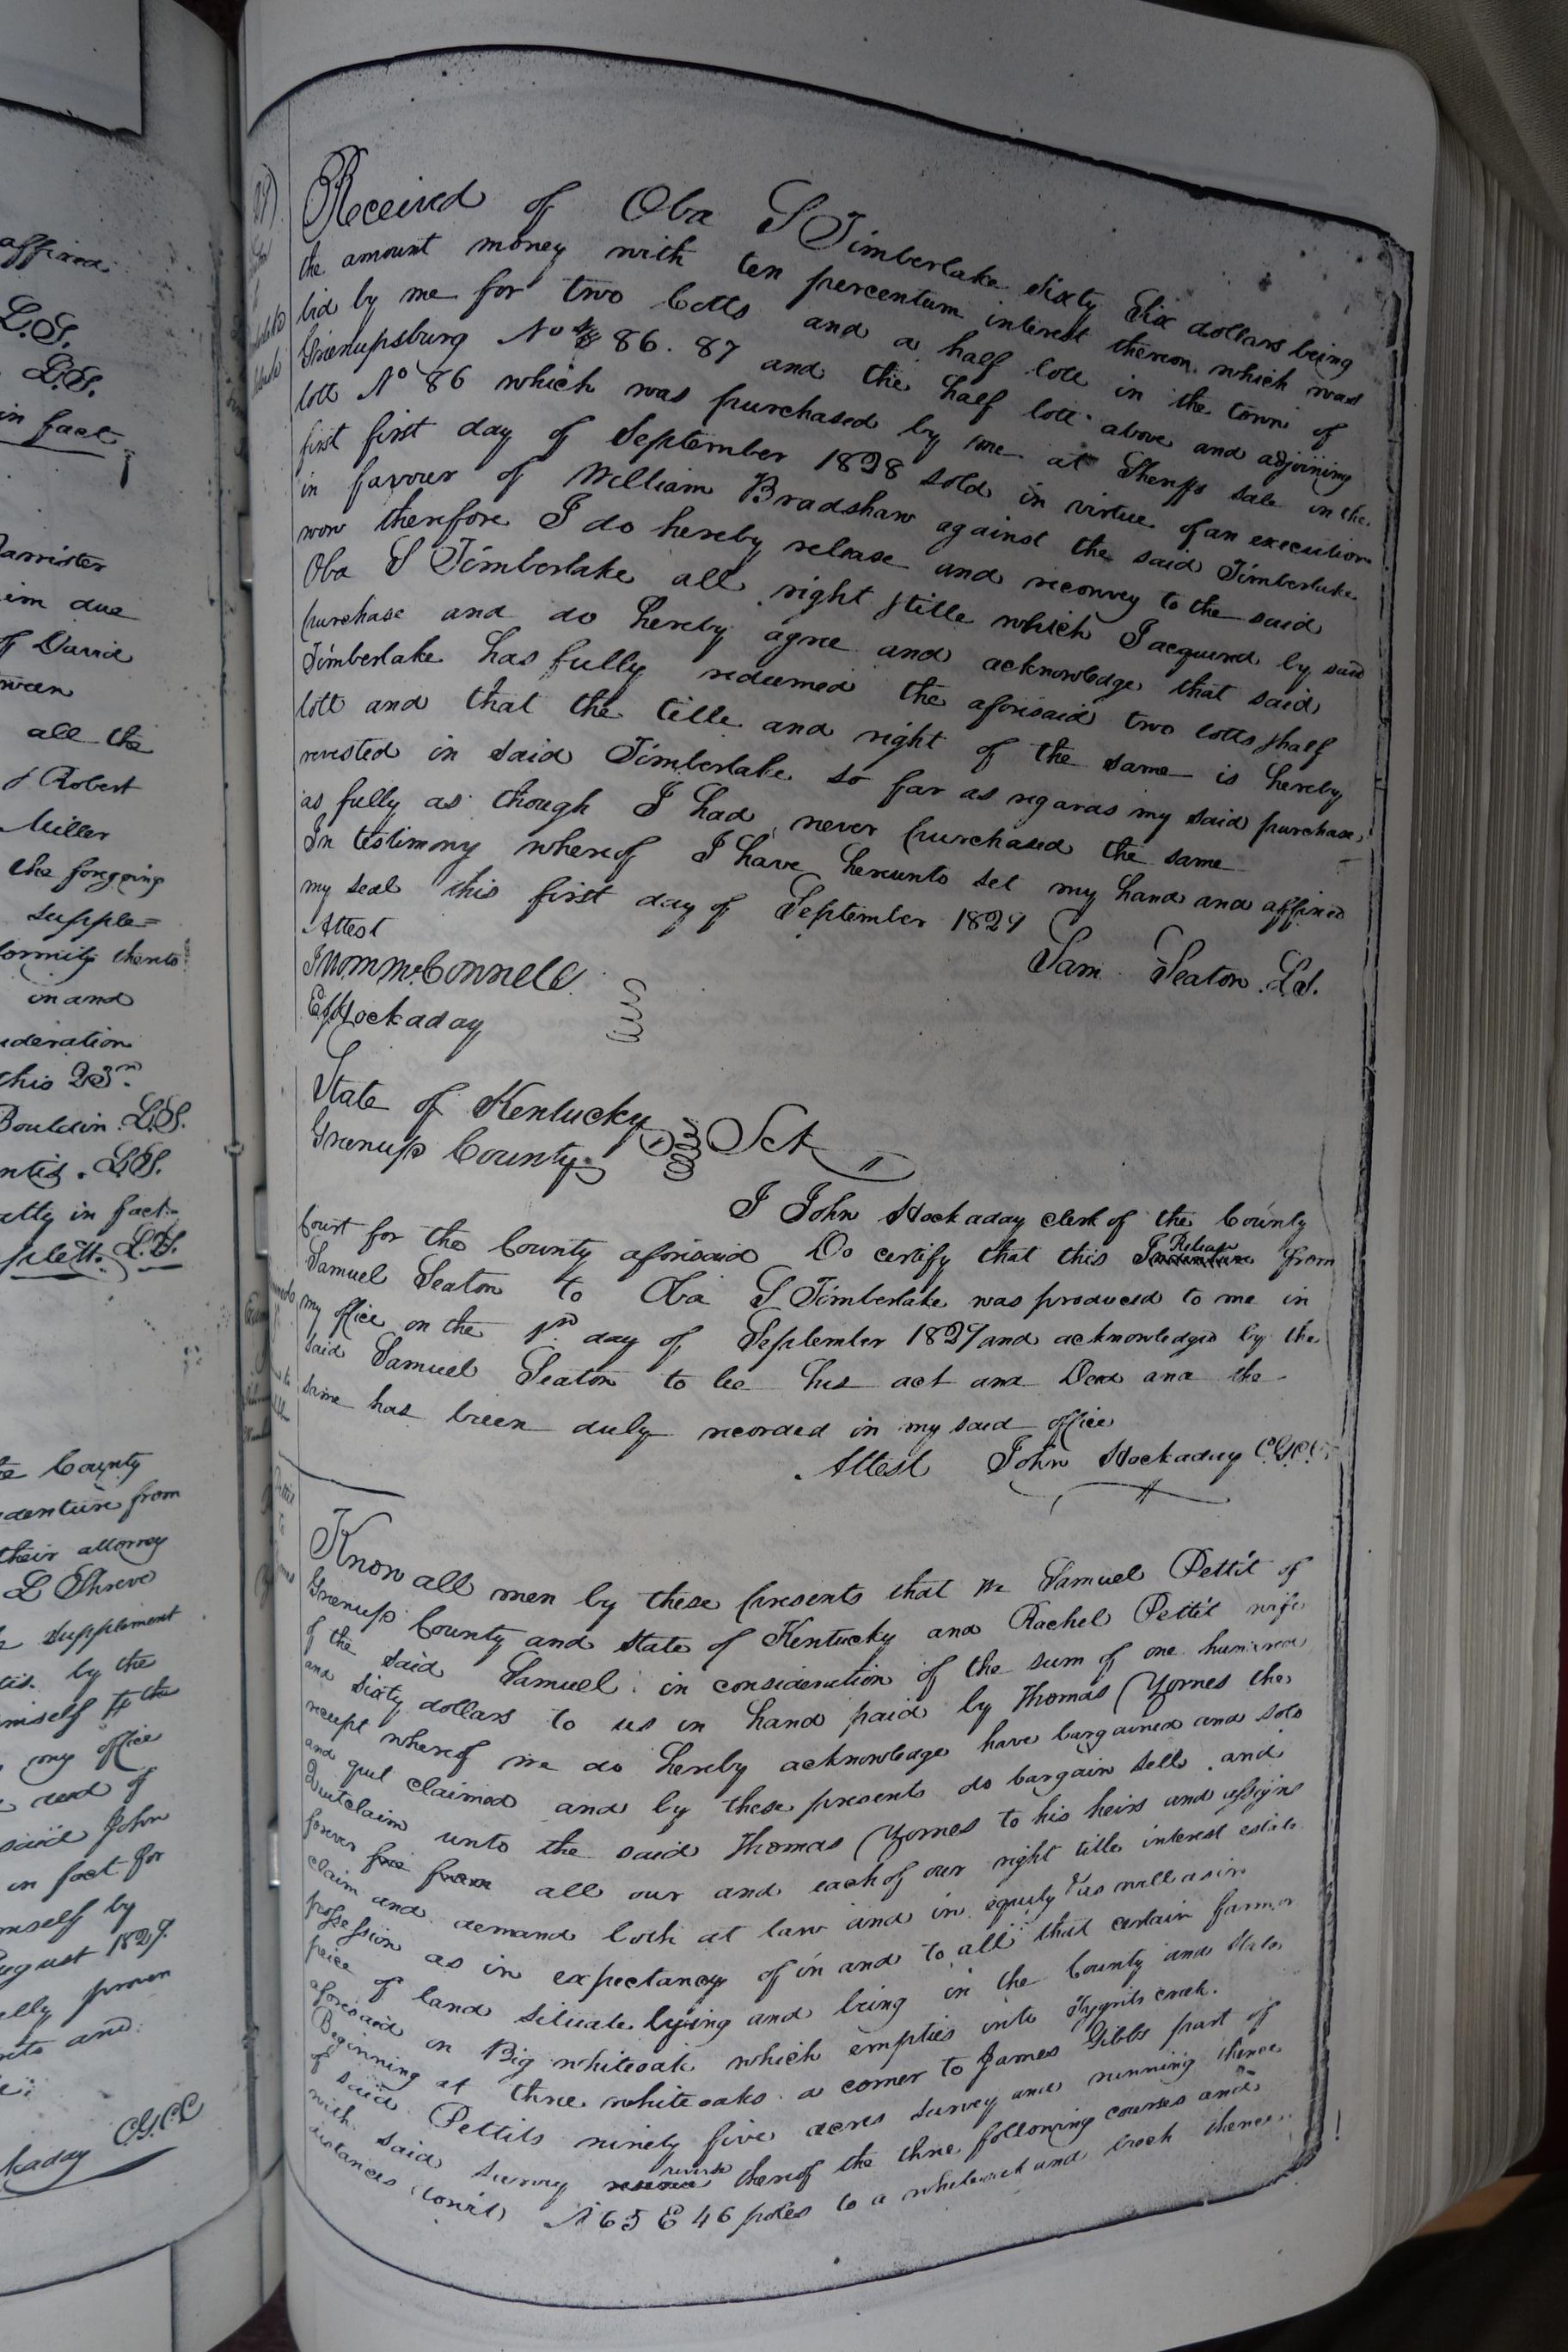 affixed
L.S.
L.S.
in fact
Bannister
him due
of David
all the
& Robert
Miller
the foregoing
supple=
formity thereto
in and
sideration
this 23rd
Bouldin. L.S.
L.S.
atty in fact
L.S.
County
Indenture from
their attorney
L Shreve
supplement
by the
himself &
my office
deed of
said John
in fact for
himself by
August 1829.
proven
and
CGCC
Received of Oba S Timberlake Sixty Six dollars being
the amount money with ten percentum interest thereon which was
bid by me for two lotts and a half lott in the town of
Greenupsburg No 86. 87 and the half lott above and adjoining
lott No 86 which was purchased by me at Sheriffs sale on the
first first day of September 1828 sold in virtue of an execution
in favour of William Bradshaw against the said Timberlake
now therefore I do hereby release and reconvey to the said
Oba S Timberlake all right & title which I acquired by said
purchase and do hereby agree and acknowledge that said
Timberlake has fully redeemed the aforesaid two lotts & half
lott and that the title and right of the same is hereby
revested in said Timberlake so far as regards my said purchase,
as fully as though I had never purchased the same
In testimony whereof I have hereunto set my hand and affixed
my seal this first day of September 1829
Attest
Sam Seaton L.S.
McConnell
Hockaday
State of Kentucky
Greenup County Sct
I John Hockaday clerk of the County
Court for the County aforesaid Do certify that this Indenture Release from
Samuel Seaton to Oba S Timberlake was produced to me in
my office on the 1st day of September 1829 and acknowledged by the
said Samuel Seaton to be his act and Deed and the
same has been duly recorded in my said office
Attest John Hockaday C.G.C.C.
Know all men by these presents that we Samuel Pettit of
Greenup County and State of Kentucky and Rachel Pettit wife
of the said Samuel in consideration of the sum of one hundred
and sixty dollars to us in hand paid by Thomas Yornes the
receipt whereof we do hereby acknowledge have bargained and sold
and quit claimed and by these presents do bargain sell and
Quitclaim unto the said Thomas Yornes to his heirs and assigns
forever from all our and each of our right title interest estate
claim and demand both at law and in equity & as well as in
possession as in expectancy of in and to all that certain farm or
peice of land situate lying and being in the County and State
aforesaid on Big whiteoak which empties into Tygerts creek.
Beginning at three white oaks a corner to James Gibbs part of
of said Pettits ninety five acres survey and running thence
with said survey reverse thereof the three following courses and
distances (towit) N 65 E 46 poles to a whiteoak and beech thence